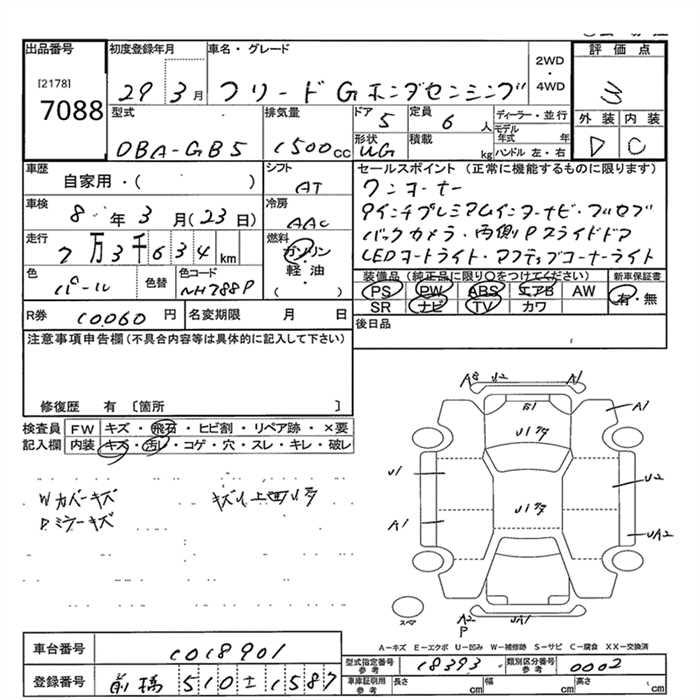 出品番号 初度登録年月 車名・グレード 評価点
[2178]
7088
29 3月 フリード G ホンダセンシング 2WD・4WD 3
型式 排気量 ドア 定員 ディーラー・並行 外装 内装
DBA-GB5 1500cc 5 6人 モデル年式 年 D C
形状 積載 ハンドル 左・右
UG kg
車歴 シフト セールスポイント(正常に機能するものに限ります)
自家用・( ) AT ワンオーナー
車検 冷房 9インチプレミアムインターナビ・フルセグ
8年3月(23日) AAC バックカメラ・両側Pスライドドア
走行 燃料 LEDヘッドライト・アクティブコーナーライト
7万3千634km ガソリン・軽油・( )
色 色替 色コード 装備品(純正品に限り○をつけてください) 新車保証書
パール NH788P PS PW ABS エアB AW 有・無
SR ナビ TV カワ
R券 10060円 名変期限 月 日 後日品
注意事項申告欄(不具合内容等は具体的に記入して下さい)
修復歴 有 〔箇所 〕
検査員 FW キズ・飛石・ヒビ割・リペア跡・×要
記入欄 内装 キズ・汚レ・コゲ・穴・スレ・キレ・破レ
Wカバーキズ
Dミラーキズ
U2 A1
A1
U1
U2
A1
UA2
A2 P UA1
スペア
A-キズ E-エクボ U-凹み W-補修跡 S-サビ C-腐食 XX-交換済
車台番号 1018901
型式指定番号 参考 18393 類別区分番号 参考 0002
登録番号 前橋 510 ま 1587
車庫証明用 参考 長さ cm 幅 cm 高さ cm